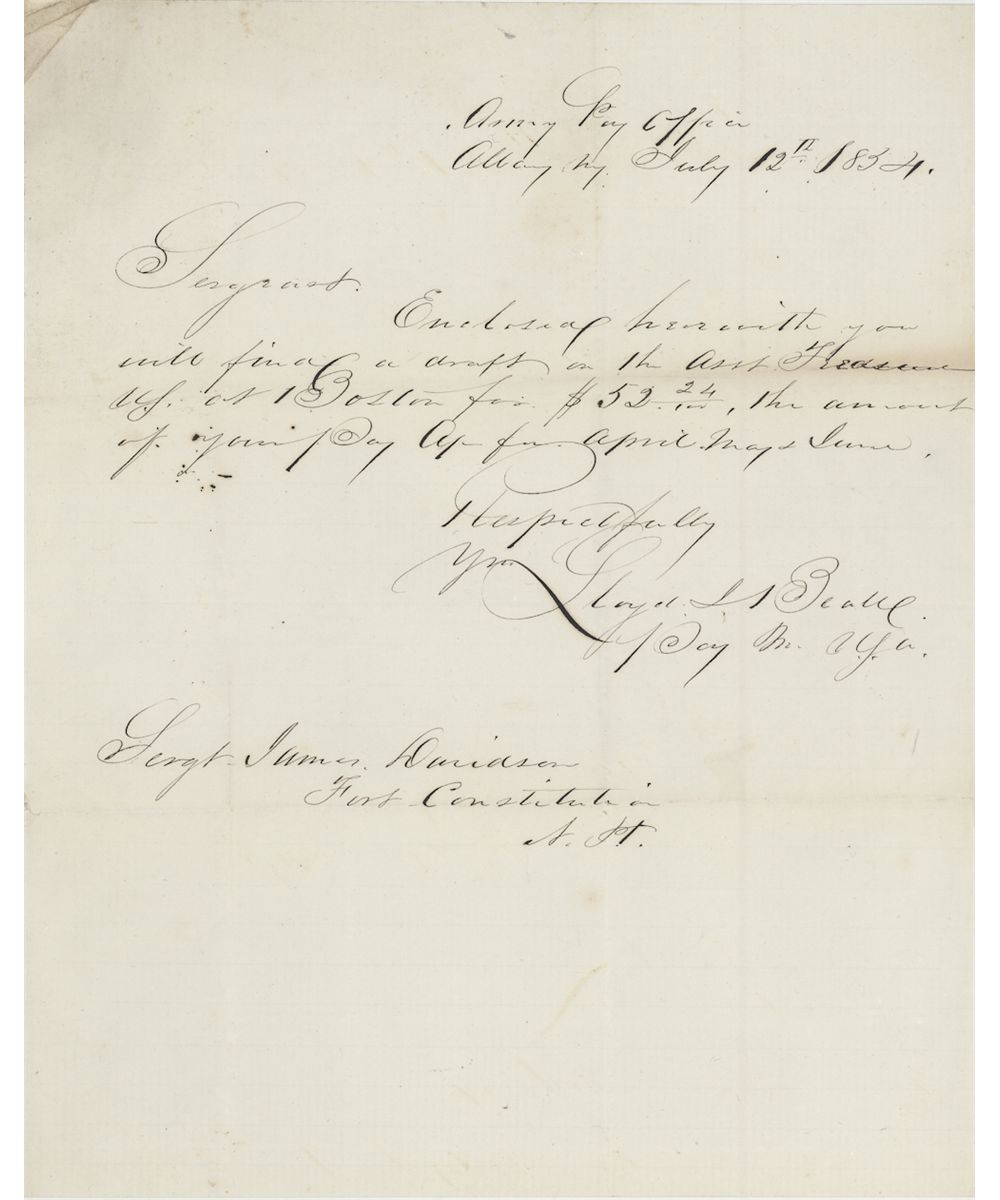 Army Pay Office
Albany Ny. July 12th 1854.
Sergeant.
Enclosed herewith you
will find a draft on the Asst Treasurer
US. at Boston for $52 24/100, the amount
of your Pay Ap for April May & June.
Respectfully
Lloyd J Beall
Pay M. U.S.A.
Sergt. James Davidson
Fort Constitution
N. H.